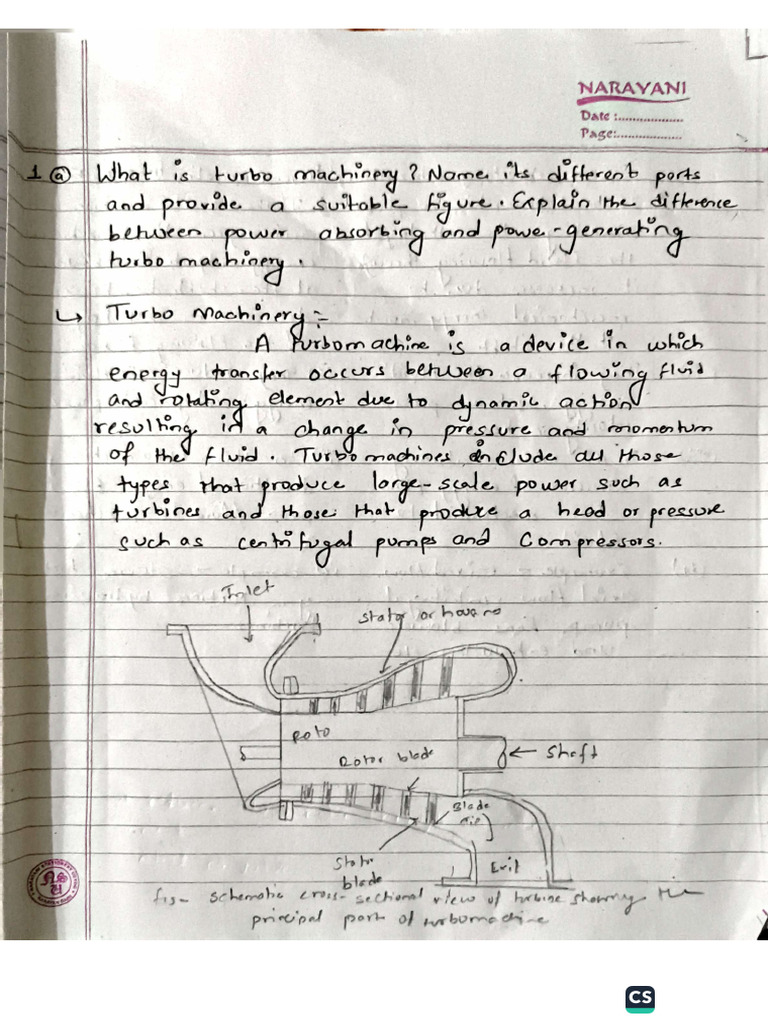 NARAYANI
Date :..................
Page:..................
1 a) What is turbo machinery? Name its different ports
and provide a suitable figure. Explain the difference
between power absorbing and powe-generating
turbo machinery.
↳ Turbo Machinery :-
A turbomachine is a device in which
energy transfer occurs between a flowing fluid
and rotating element due to dynamic action
resulting in a change in pressure and momentum
of the fluid. Turbomachines include all those
types that produce large-scale power such as
turbines and those that produce a head or pressure
such as centrifugal pumps and Compressors.
Inlet
stator or
Roto
Rotor blade
← Shaft
Blade
Stator
blade
Exit
fig- schematic cross-sectional view of turbine showing the
principal part of turbomachine
CS